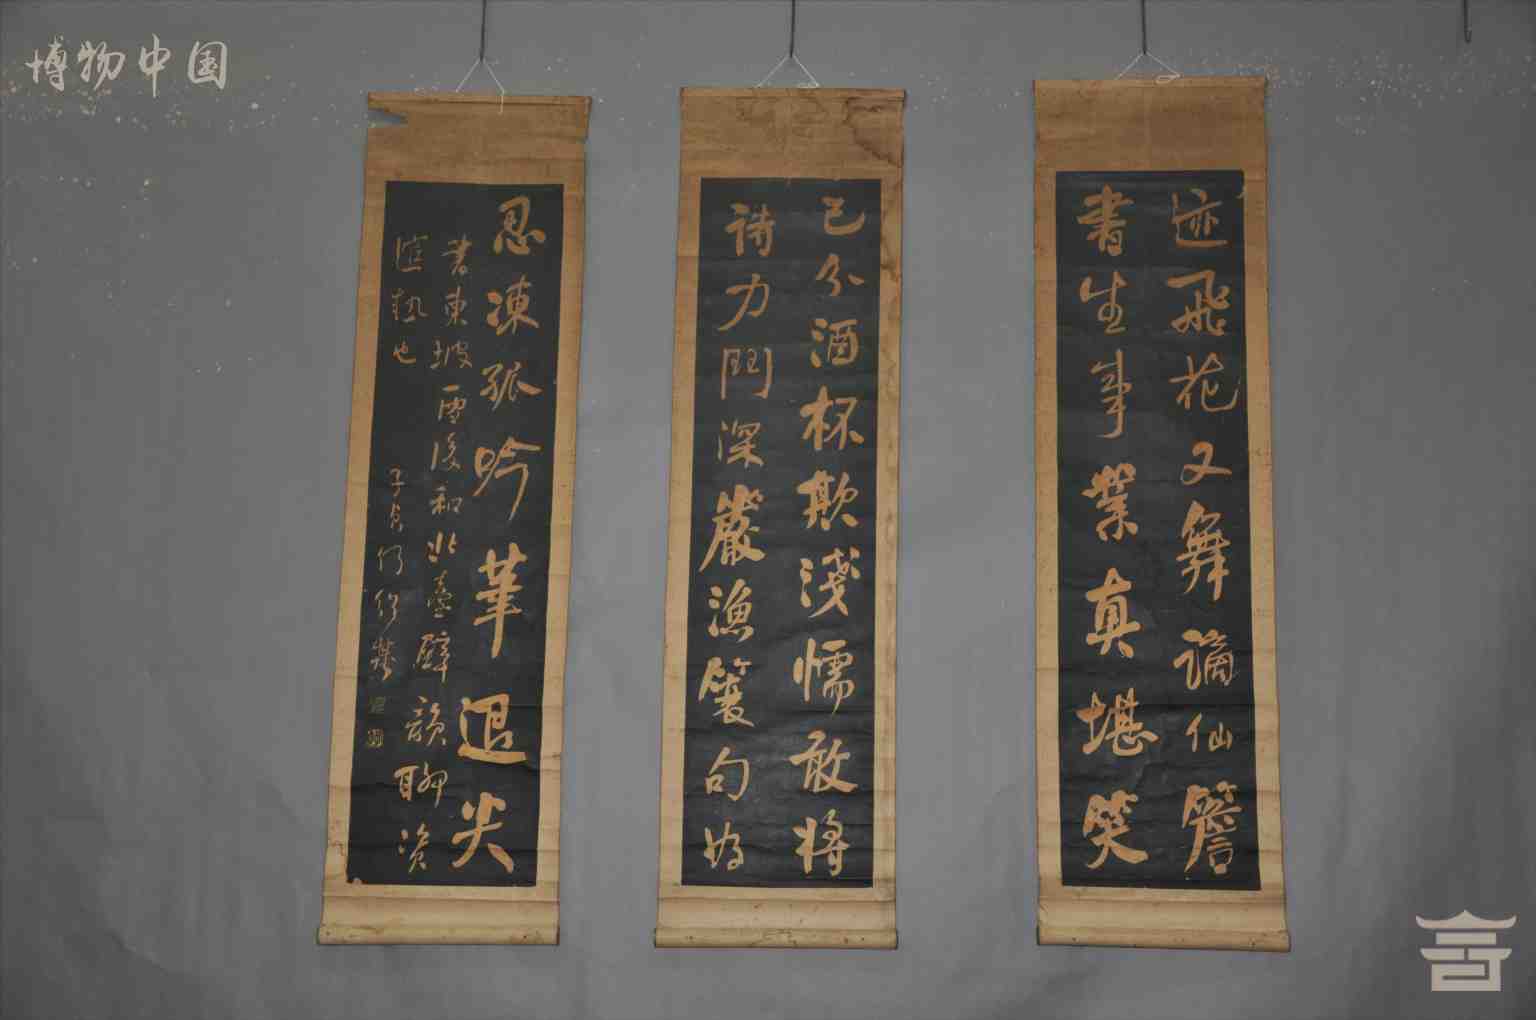 博物中国
迹飛花又舞謫仙簷
書生事業真堪笑
已分酒杯欺淺懦敢將
詩力鬥深嚴漁簑句好
忍凍孤吟筆退尖
書東坡雪後和北臺壁韻聊資
子貞何紹基